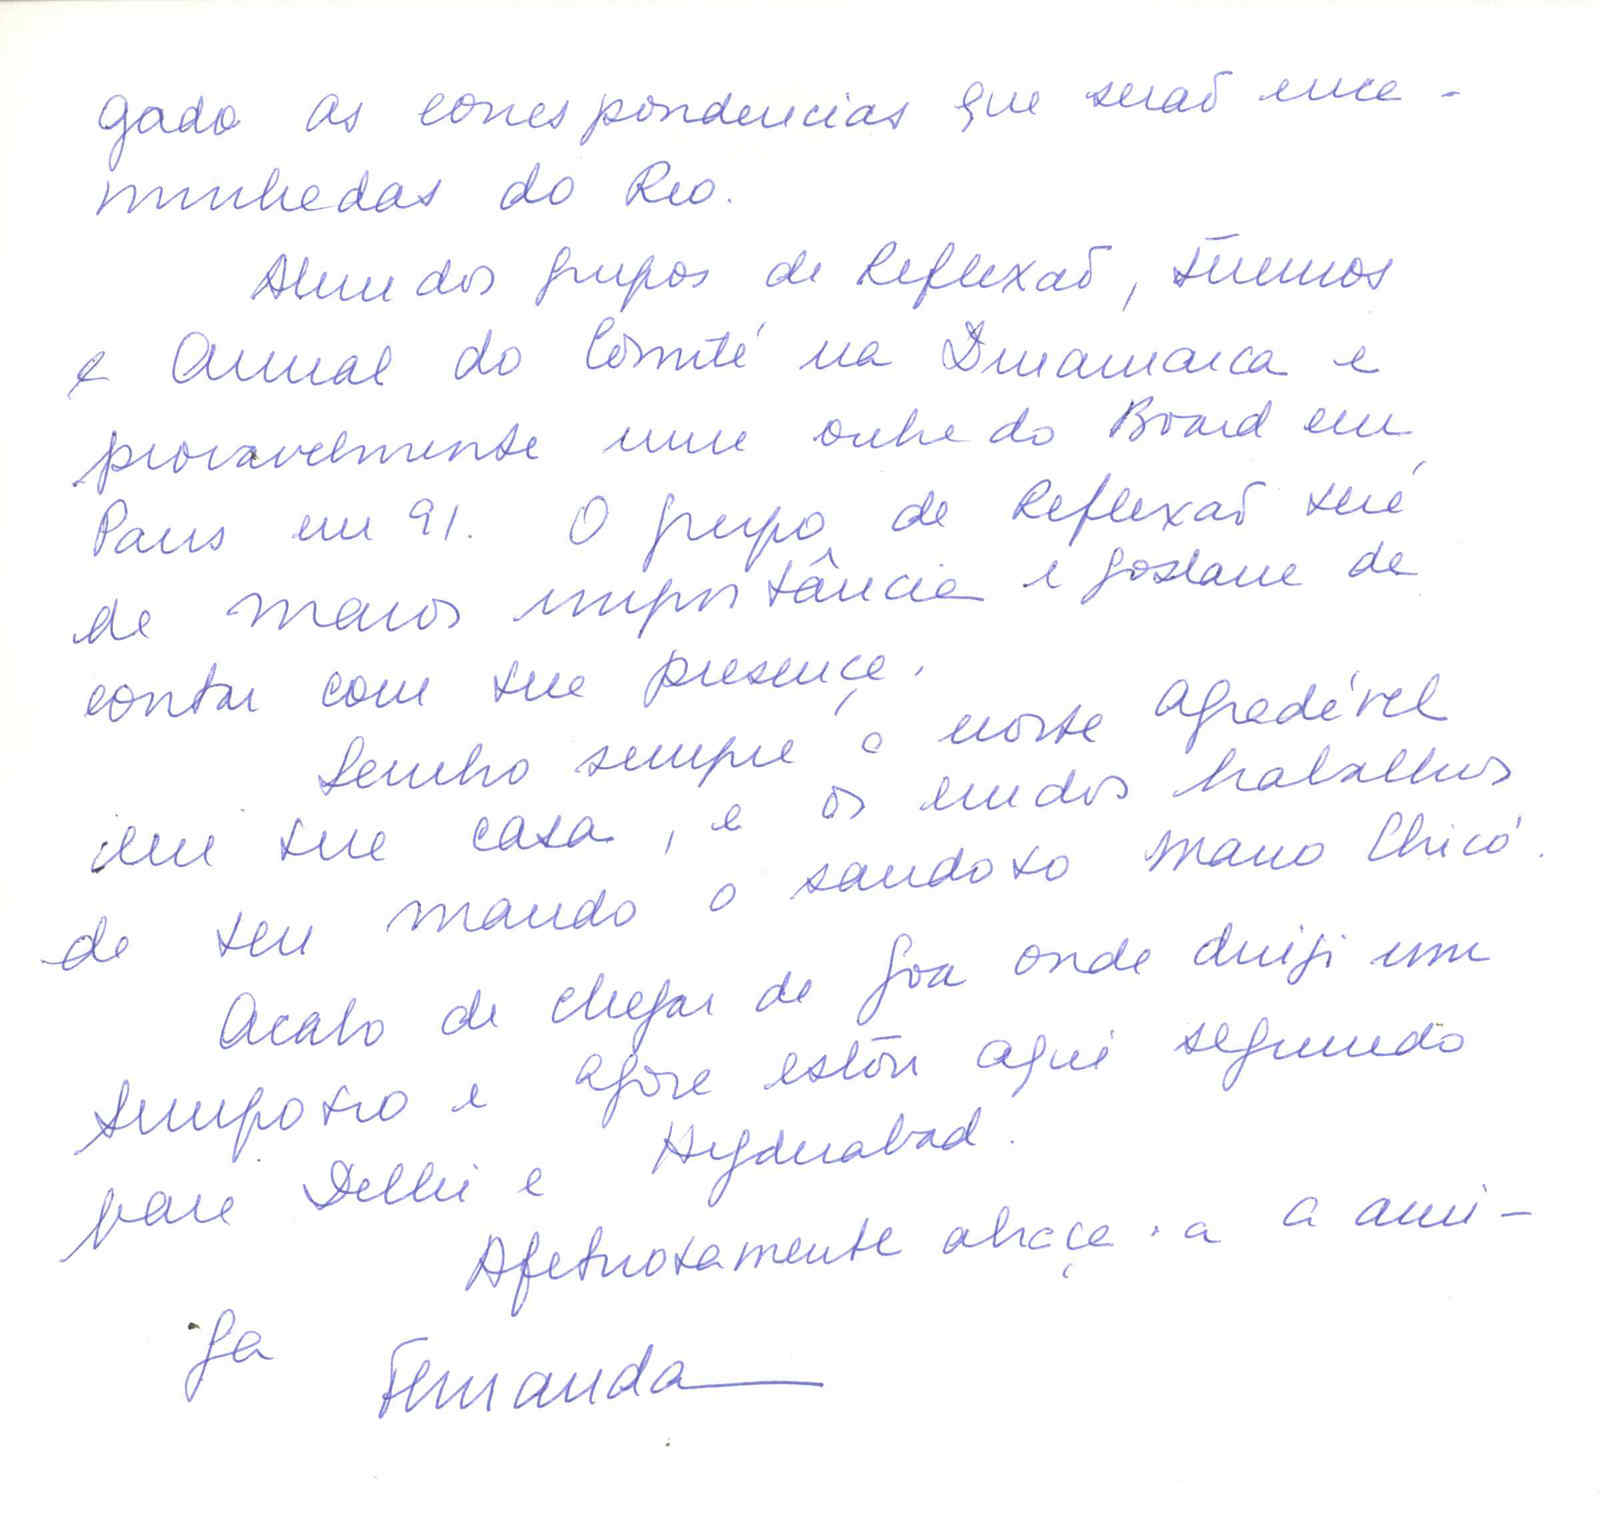 gado as correspondencias que serão enca-
minhadas do Rio.
Alem dos grupos de Reflexão, teremos
a Annual do Comité na Dinamarca e
provavelmente uma outra do Board em
Paris em 91. O grupo de Reflexão será
de maior importância e gostaria de
contar com sua presença.
Lembro sempre a noite agradável
em sua casa, e os lindos trabalhos
de seu marido o saudoso Mario Chicó.
Acabo de chegar de Goa onde dirigi um
Simposio e agora estou aqui seguindo
para Delhi e Hyderabad.
Afetuosamente abraça-a a ami-
ga Fernanda